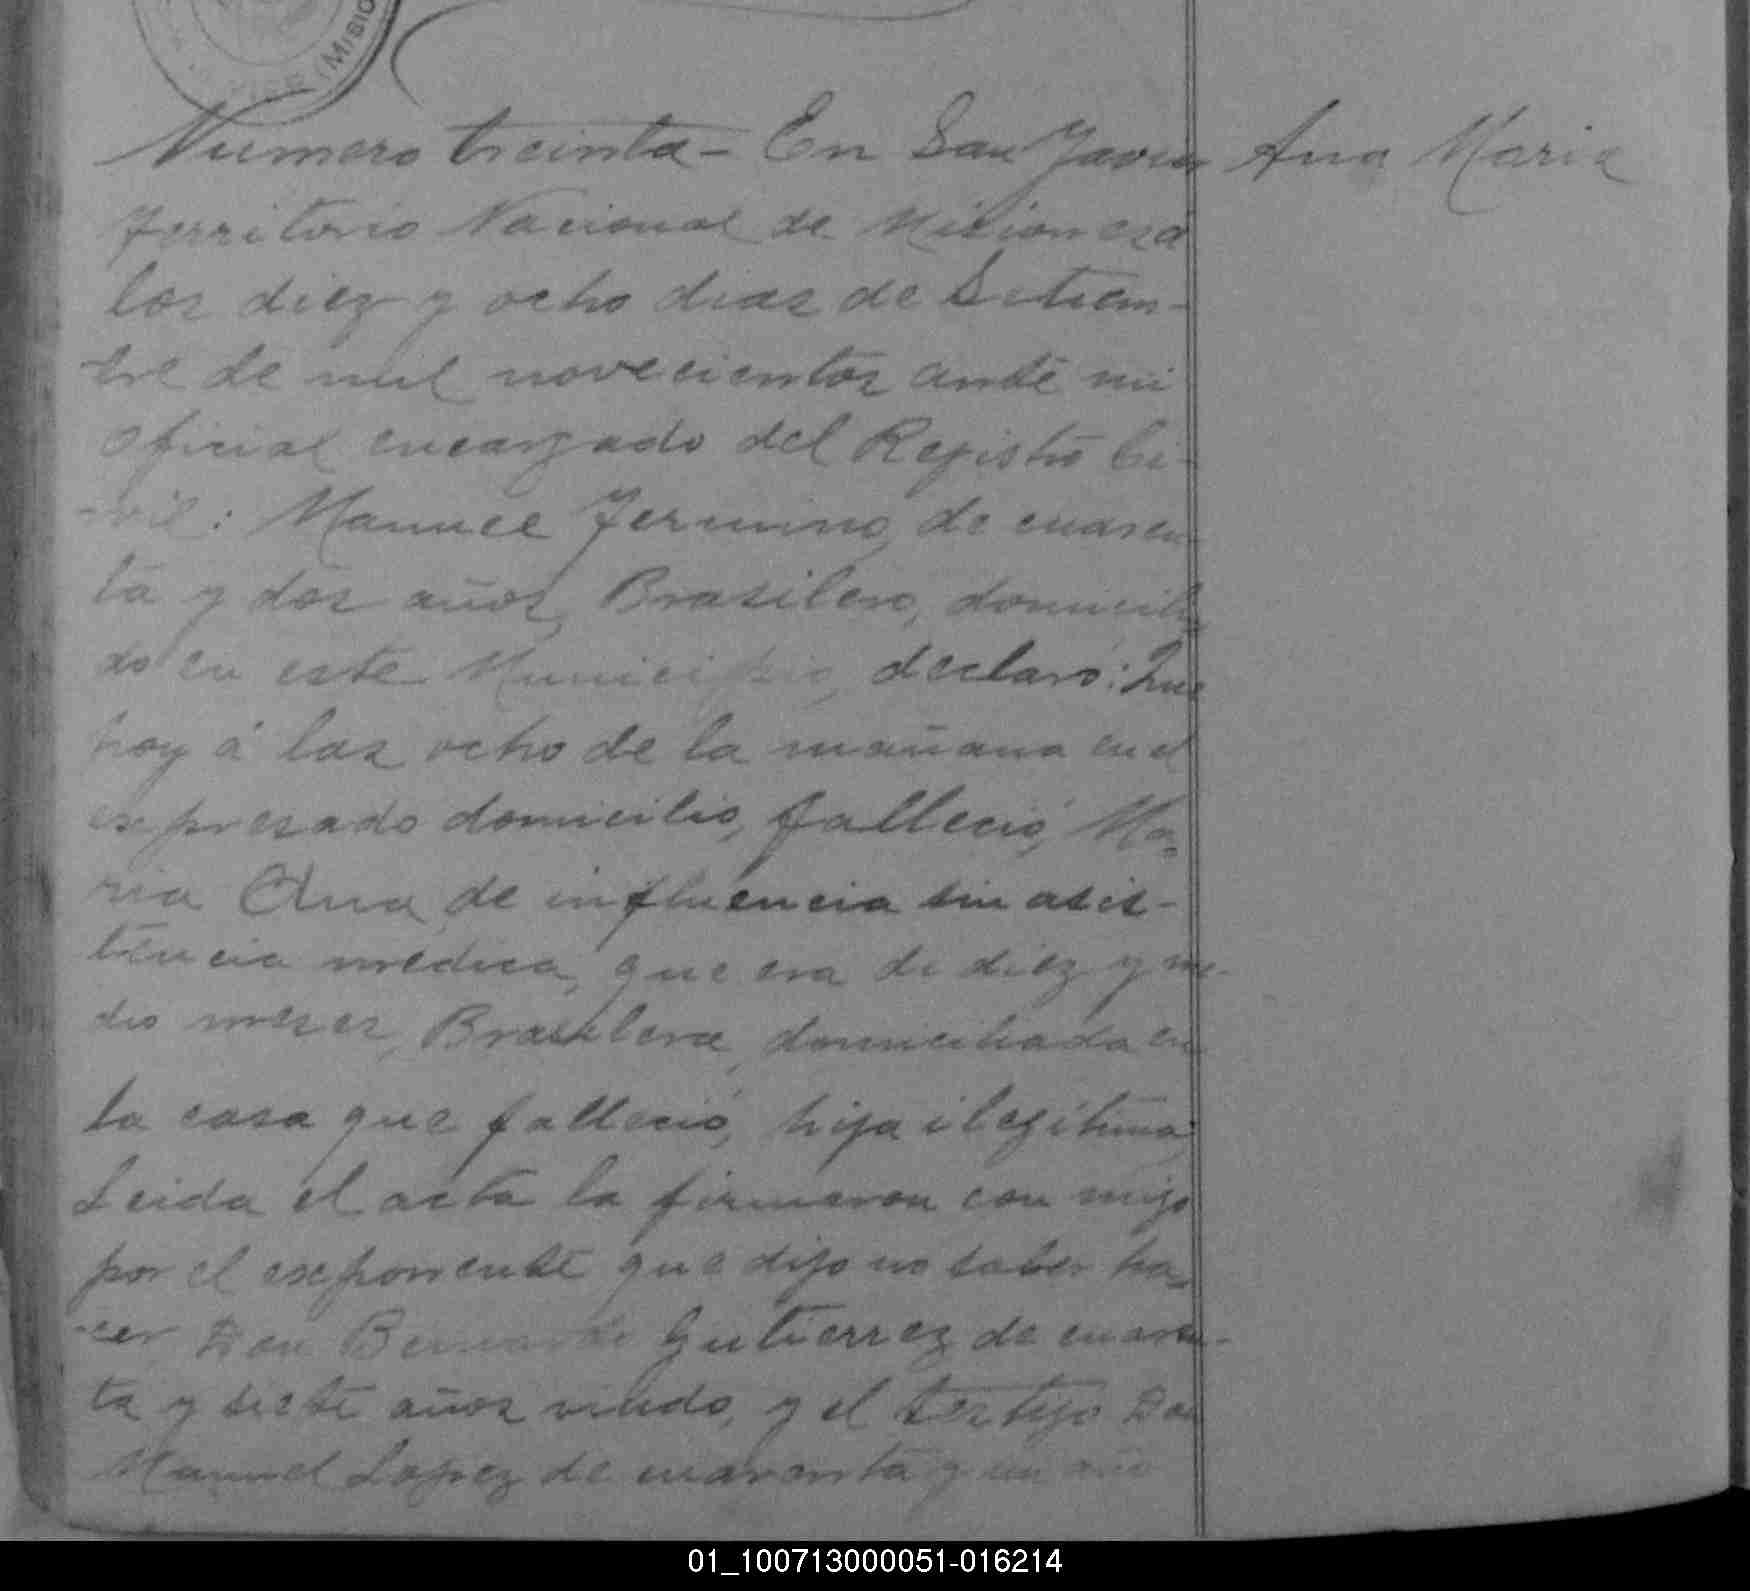 (MISIO
Numero treinta - En San Javier
Ana Maria
Territorio Nacional de Misiones á
los diez y ocho dias de Setiem-
bre de mil novecientos ante mi
Oficial encargado del Registro Ci-
vil: Manuel Fermino, de cuaren-
ta y dos años, Brasilero, domicilia
do en este Municipio, declaró: Que
hoy á las ocho de la mañana en el
expresado domicilio, falleció, Ma-
ria Ana, de influencia sin asis-
tencia medica, que era de diez y me-
dio meses, Brasilera, domiciliada en
la casa que falleció, hija ilegítima,
Leida el acta la firmaron con migo
por el exponente que dijo no saber ha-
cer, Don Bernardo Gutierrez de cuaren-
ta y siete años viudo, y el testigo Don
Manuel Lopez de cuarenta y un año
01_100713000051-016214